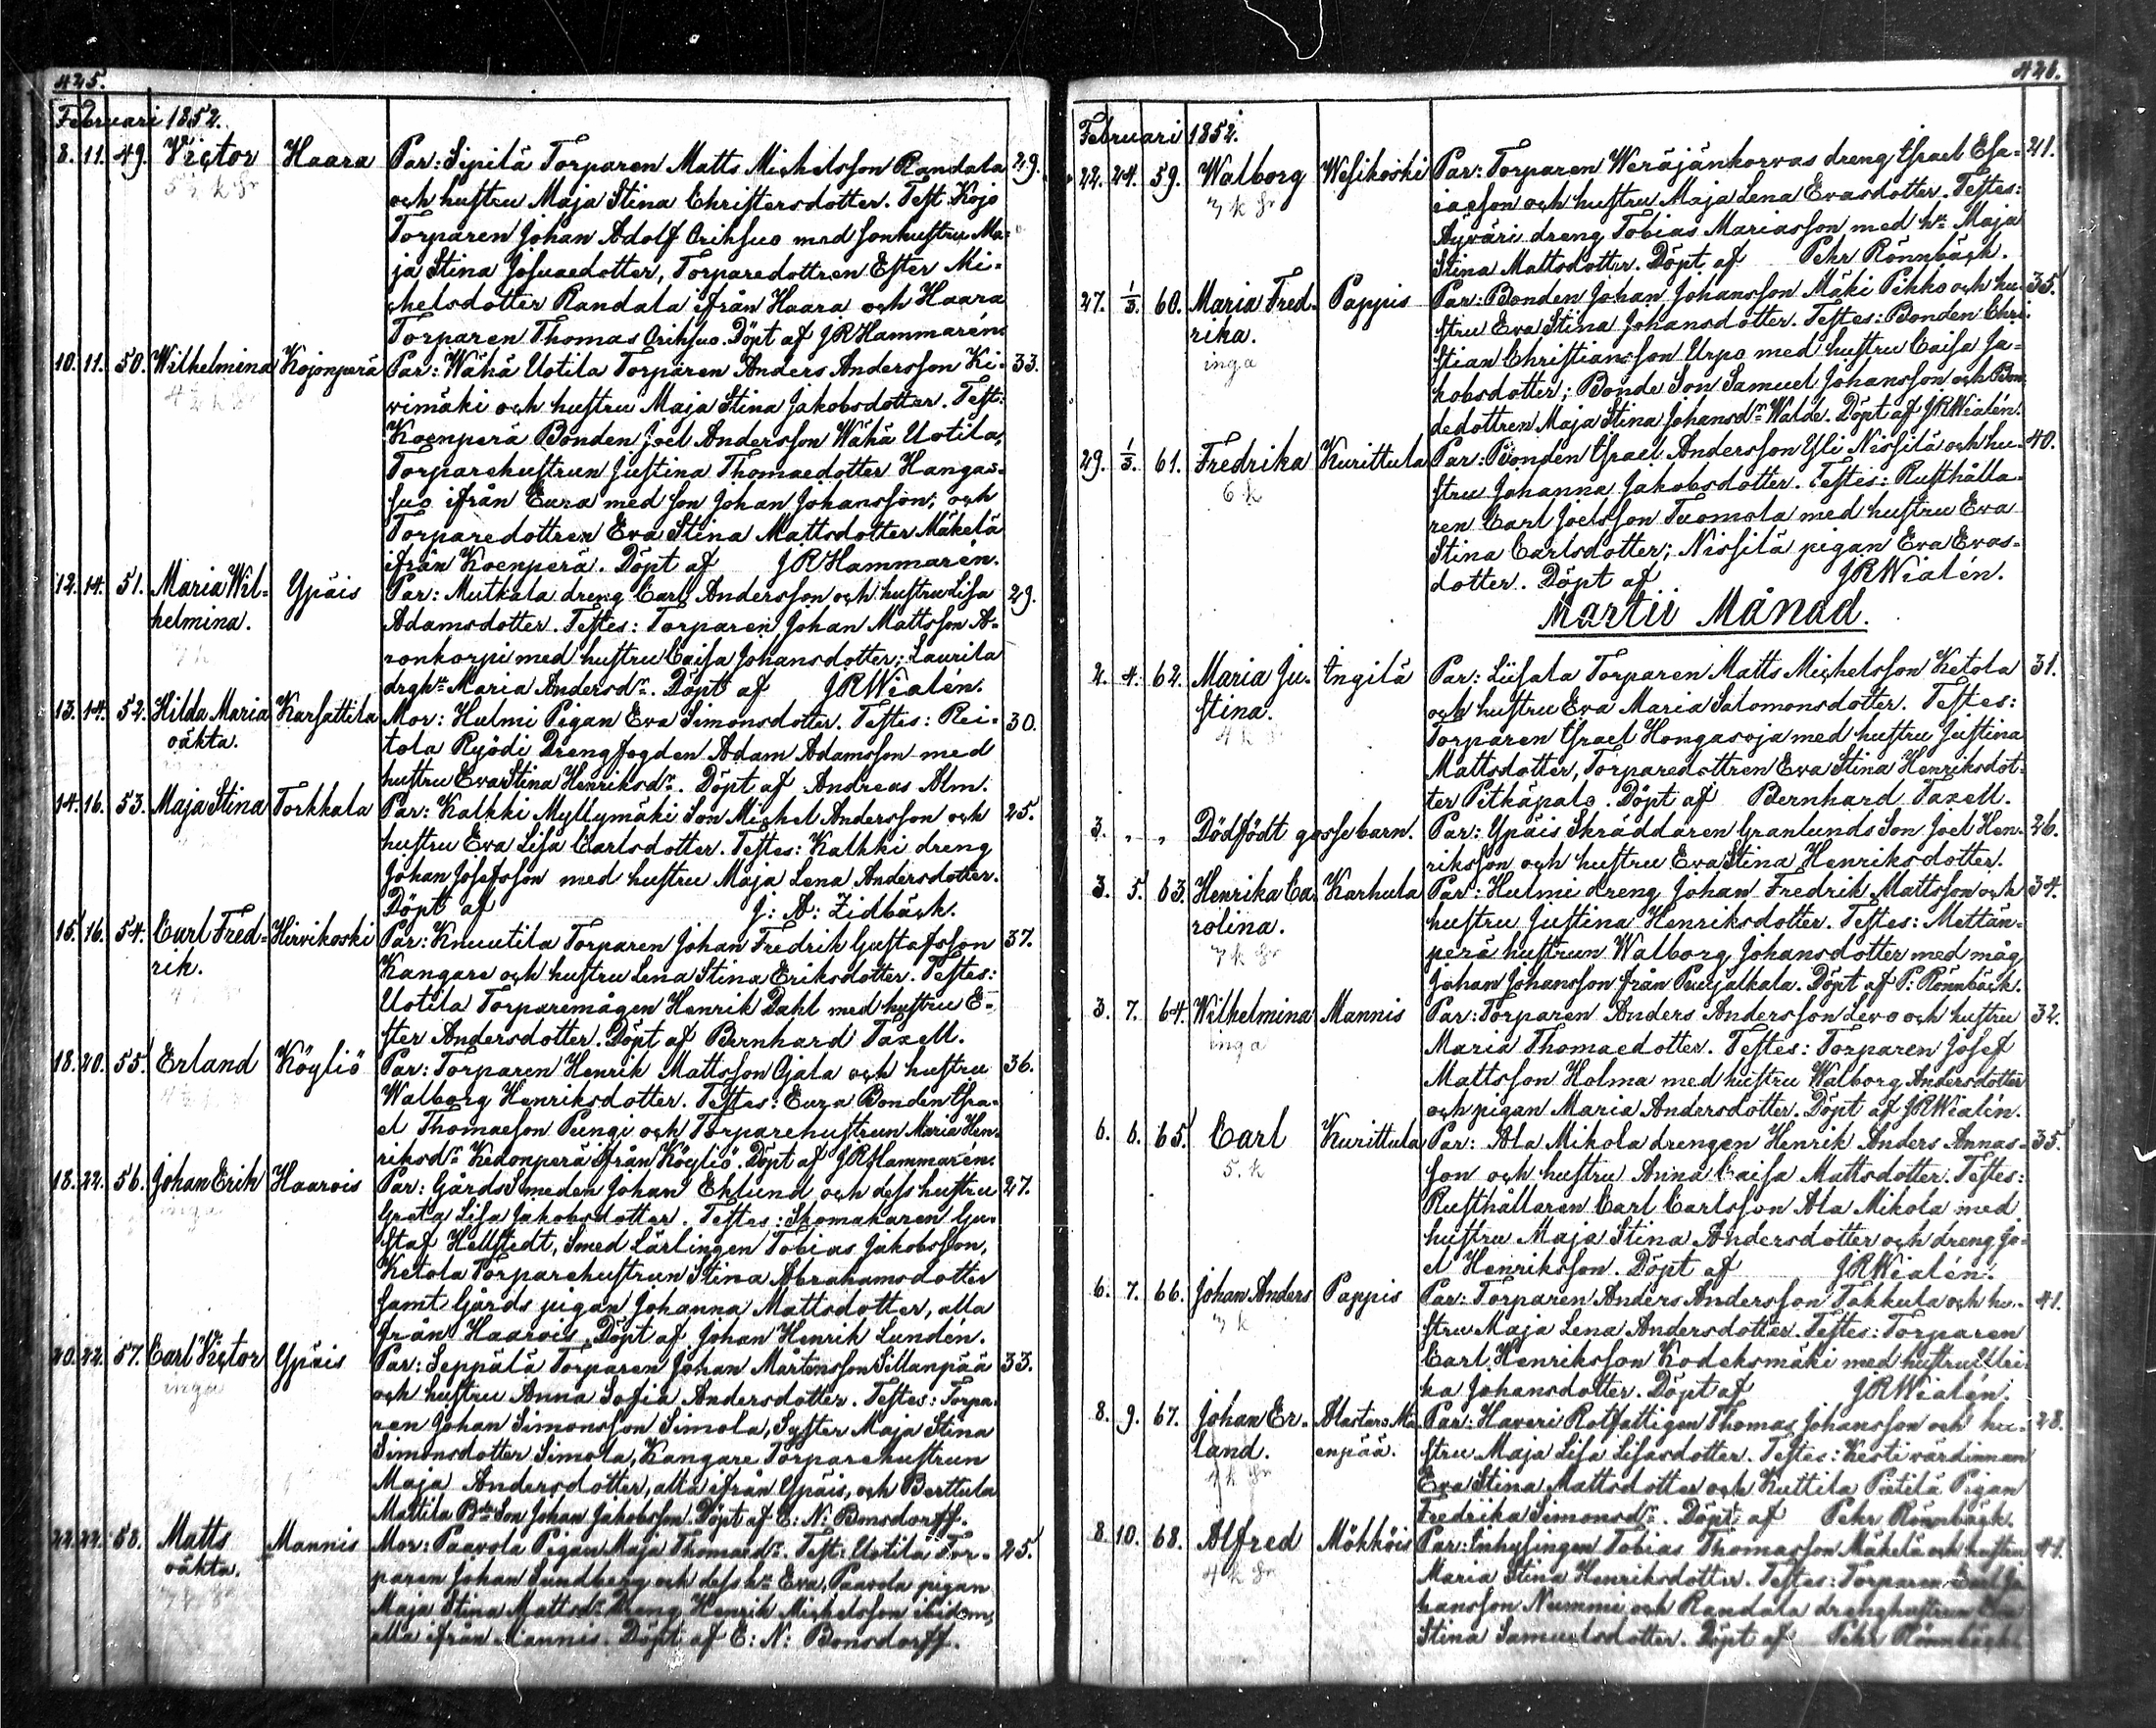 425.
Februari 1852.
8. 11. 49. Victor Haara Par: Sipilä Torparen Matts Michelsson Randala 29.
och hustru Maja Stina Christersdotter. Test Kojo
Torparen Johan Adolf Orihsuo med sonhustru Ma-
ja Stina Josuaedotter, Torparedottren Ester Mi-
chelsdotter Randala ifrån Haara och Haara
Torparen Thomas Orihsuo. Döpt af JRHammarén.
10. 11. 50. Wilhelmina Kojonperä Par: Wähä Uotila Torparen Anders Andersson Ki- 33.
vimäki och hustru Maja Stina Jakobsdotter. Test:
Koenperä Bonden Joel Andersson Wähä Uotila,
Torparehustrun Justina Thomaedotter Hangas-
suo ifrån Eura med son Johan Johansson; och
Torparedottren Eva Stina Mattsdotter Mäkelä
ifrån Koenperä. Döpt af JRHammarén.
12. 14. 51. Maria Wil- Ypäis Par: Mutkala dreng Carl Andersson och hustru Lisa 29.
helmina. Adamsdotter. Testes: Torparen Johan Mattsson A-
ronkorpi med hustru Caisa Johansdotter; Laurila
drgh:n Maria Andersd:r. Döpt af JRWialén.
13. 14. 52. Hilda Maria Karsattila Mor: Hulmi Pigan Eva Simonsdotter. Testes: Rei- 30.
oäkta. tola Ryödi Drengfogden Adam Adamsson med
hustru Eva Stina Henriksd:r. Döpt af Andreas Alm.
14. 16. 53. Maja Stina Torkkala Par: Kalkki Myllymäki Son Michel Andersson och 25.
hustru Eva Lisa Carlsdotter. Testes: Kalkki dreng
Johan Josefsson med hustru Maja Lena Andersdotter.
Döpt af J: A: Zidbäck.
15. 16. 54. Carl Fred- Hirvikoski Par: Knuutila Torparen Johan Fredrik Gustafsson 37.
rik. Kangare och hustru Lena Stina Eriksdotter. Testes:
Uotila Torparemågen Henrik Dahl med hustru E-
ster Andersdotter. Döpt af Bernhard Taxell.
18. 20. 55. Erland Köyliö Par: Torparen Henrik Mattsson Ojala och hustru 36.
Walborg Henriksdotter. Testes: Eura Bonden Isra-
el Thomaeson Pungi och Torparehustrun Maria Hen-
riksd:r Kedonperä ifrån Köyliö. Döpt af JRHammarén.
18. 22. 56. Johan Erik Haarois Par: Gårds Smeden Johan Eklund och dess hustru 27.
inga Greta Lisa Jakobsdotter. Testes: Skomakaren Gu-
staf Hellstedt, Smed Lärlingen Tobias Jakobsson,
Ketola Torparehustrun Stina Abrahamsdotter
samt Gårds pigan Johanna Mattsdotter, alla
från Haarois. Döpt af Johan Henrik Lundén.
20. 22. 57. Carl Victor Ypäis Par: Seppälä Torparen Johan Mårtensson Sillanpää 33.
inga och hustru Anna Sofia Andersdotter. Testes: Torpa-
ren Johan Simonsson Simola, Syster Maja Stina
Simonsdotter Simola, Kangare Torparehustrun
Maja Andersdotter, alla ifrån Ypäis, och Berttula
Mattila Bde Son Johan Jakobsson. Döpt af E: N: Bonsdorff.
22. 22. 58. Matts Mannis Mor: Paavola Pigan Maja Thomaed:r. Test: Uotila Tor- 25.
oäkta. paren Johan Sundberg och dess h:u Eva, Paavola pigan
Maja Stina Mattsd:r Dreng Henrik Michelsson ibidem,
alla ifrån Mannis. Döpt af E: N: Bonsdorff.
426.
Februari 1852.
22. 24. 59. Walborg Wesikoski Par: Torparen Weräjänkorvas dreng Israel Esa- 21.
7 k iaeson och hustru Maja Lena Evasdotter. Testes:
Äyväri dreng Tobias Mariasson med h:u Maja
Stina Mattsdotter. Döpt af Pehr Rönnbäck.
27. 1/3. 60. Maria Fred- Pappis Par: Bonden Johan Johansson Mäki Pihko och hu- 35.
rika. stru Eva Stina Johansdotter. Testes: Bonden Chri-
inga stian Christiansson Urpo med hustru Caisa Ja-
kobsdotter; Bonde Son Samuel Johansson och Bon-
dedottren Maja Stina Johansd:r Walde. Döpt af JRWialén.
29. 1/3. 61. Fredrika Kurittula Par: Bonden Israel Andersson Yli Nissilä och hu- 40.
6 k stru Johanna Jakobsdotter. Testes: Rusthålla-
ren Carl Joelsson Tuomola med hustru Eva
Stina Carlsdotter; Nissilä pigan Eva Evas-
dotter. Döpt af JRWialén.
Martii Månad.
2. 4. 62. Maria Ju- Ingilä Par: Liisala Torparen Matts Michelsson Ketola 31.
stina. och hustru Eva Maria Salomonsdotter. Testes:
Torparen Israel Hongasoja med hustru Justina
Mattsdotter, Torparedottren Eva Stina Henriksdot-
ter Pitkäpalo. Döpt af Bernhard Taxell.
3. " " Dödfödt gossebarn. Par: Ypäis Skräddaren Granlunds Son Joel Hen- 26.
riksson och hustru Eva Stina Henriksdotter.
3. 5. 63. Henrika Ca- Karhula Par: Hulmi dreng Johan Fredrik Mattsson och 34.
rolina. hustru Justina Henriksdotter. Testes: Mettän-
7 k perä hustrun Walborg Johansdotter med måg
Johan Johansson från Puujalkala. Döpt af P: Rönnbäck.
3. 7. 64. Wilhelmina Mannis Par: Torparen Anders Andersson Levo och hustru 32.
inga Maria Thomaedotter. Testes: Torparen Josef
Mattsson Holma med hustru Walborg Andersdotter
och pigan Maria Andersdotter. Döpt af JRWialén.
6. 6. 65. Carl Kurittula Par: Ala Mikola drengen Henrik Anders Annas- 35.
5. k son och hustru Anna Caisa Mattsdotter. Testes:
Rusthållaren Carl Carlsson Ala Mikola med
hustru Maja Stina Andersdotter och dreng Jo-
el Henriksson. Döpt af JRWialén.
6. 7. 66. Johan Anders Pappis Par: Torparen Anders Andersson Takkula och hu- 41.
7 k stru Maja Lena Andersdotter. Testes: Torparen
Carl Henriksson Kodeksmäki med hustru Ulri-
ka Johansdotter. Döpt af JRWialén.
8. 9. 67. Johan Er- Alastaro Ma- Par: Haveri Rotfattigen Thomas Johansson och hu- 28.
land. enpää. stru Maja Lisa Lisasdotter. Testes: Kestivärdinnan
Eva Stina Mattsdotter och Kuttila Pietilä Pigan
Fredrika Simonsd:r. Döpt af Pehr Rönnbäck.
8. 10. 68. Alfred Mökköis Par: Inhysingen Tobias Thomasson Mäkelä och hustru 44.
4 k Maria Stina Henriksdotter. Testes: Torparen Carl Jo-
hansson Nummi och Randala drenghustrun Eva
Stina Samuelsdotter. Döpt af Pehr Rönnbäck.